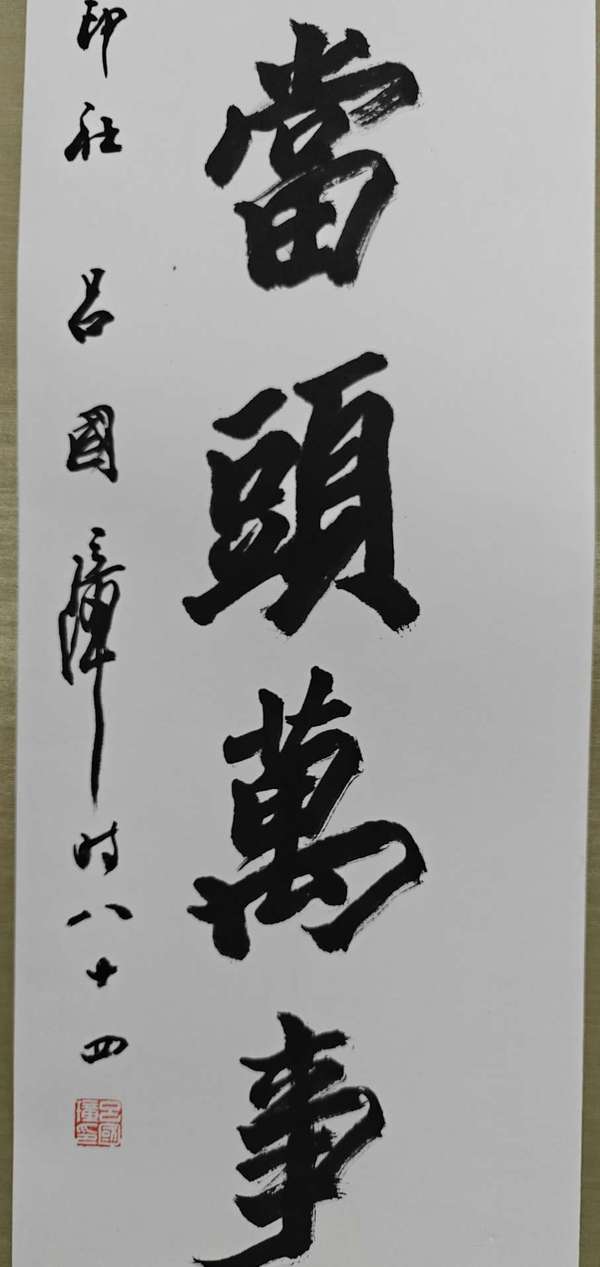 當頭萬事
印社 呂國璋時八十四
呂國璋印